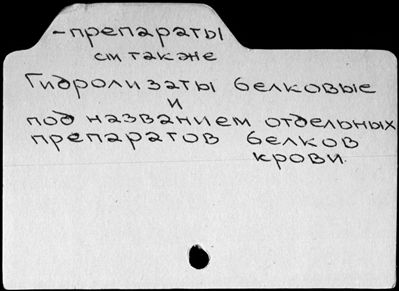 -препараты
см также
Гидролизаты белковые
и
под названием отдельных
препаратов белков
крови.